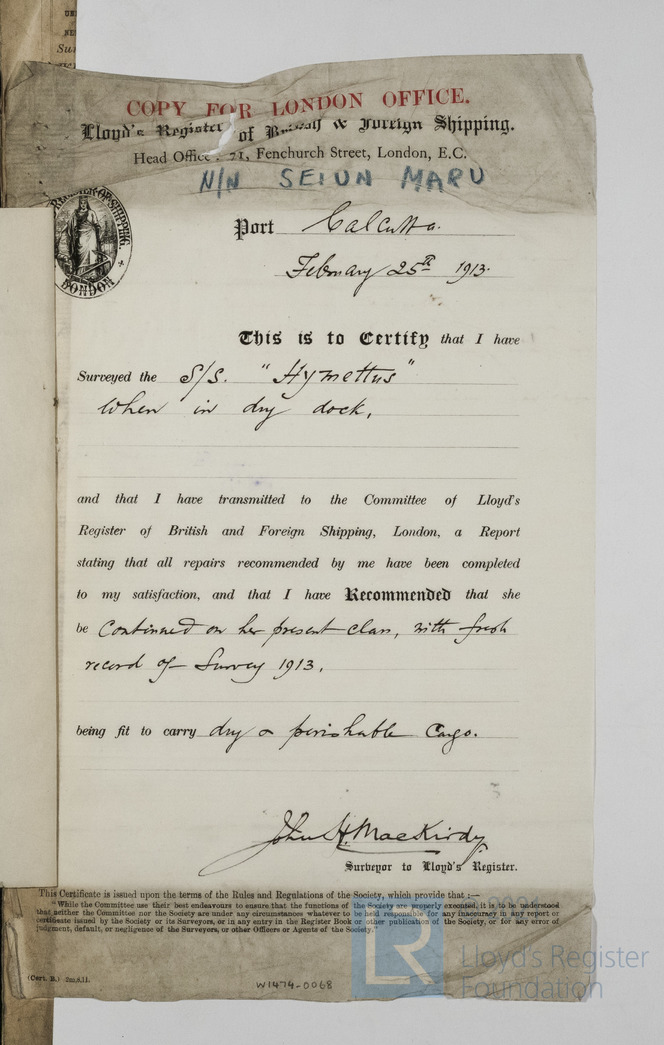 COPY FOR LONDON OFFICE.
Lloyd's Register of British & Foreign Shipping.
Head Office : 71, Fenchurch Street, London, E.C.
N/N SEIUN MARU
REGISTER OF SHIPPING.
LONDON
Port Calcutta.
February 25th 1913.
This is to Certify that I have
Surveyed the S/S. "Hymettus"
When in dry dock,
and that I have transmitted to the Committee of Lloyd's
Register of British and Foreign Shipping, London, a Report
stating that all repairs recommended by me have been completed
to my satisfaction, and that I have Recommended that she
be Continued on her present class, with fresh
record of Survey 1913,
being fit to carry dry & perishable Cargo.
John H. MacKirdy
Surveyor to Lloyd's Register.
This Certificate is issued upon the terms of the Rules and Regulations of the Society, which provide that :—
"While the Committee use their best endeavours to ensure that the functions of the Society are properly executed, it is to be understood
that neither the Committee nor the Society are under any circumstances whatever to be held responsible for any inaccuracy in any report or
certificate issued by the Society or its Surveyors, or in any entry in the Register Book or other publication of the Society, or for any error of
judgment, default, or negligence of the Surveyors, or other Officers or Agents of the Society."
(Cert. M.)
W1474-0068
LR
Lloyd's Register
Foundation